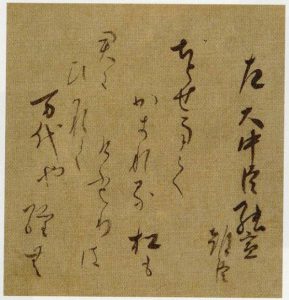 左大中臣能宣
朝臣
ちとせまて
かきれる松も
けふよりは
君に
ひかれて
万代や経む